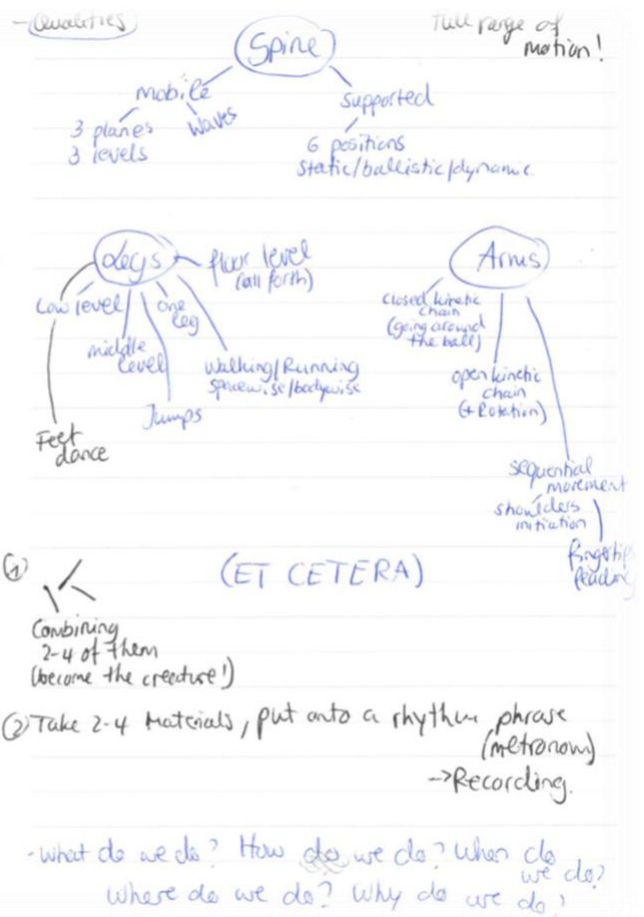 - Qualities
full range of
motion!
Spine
mobile
supported
3 planes
3 levels
waves
6 positions
static/ballistic/dynamic
Legs
floor level
(all forth)
Low level
one
leg
middle
level
Walking/Running
spacewise/bodywise
Jumps
Feet
dance
Arms
closed kinetic
chain
(going around
the ball)
open kinetic
chain
(+ Rotation)
sequential
movement
shoulders
initiation
fingertips
leading
(ET CETERA)
①
Combining
2-4 of them
(become the creature!)
② Take 2-4 Materials, put onto a rhythm phrase
(metronom)
→Recording.
- what do we do? How do we do? When do
we do?
Where do we do? Why do we do?